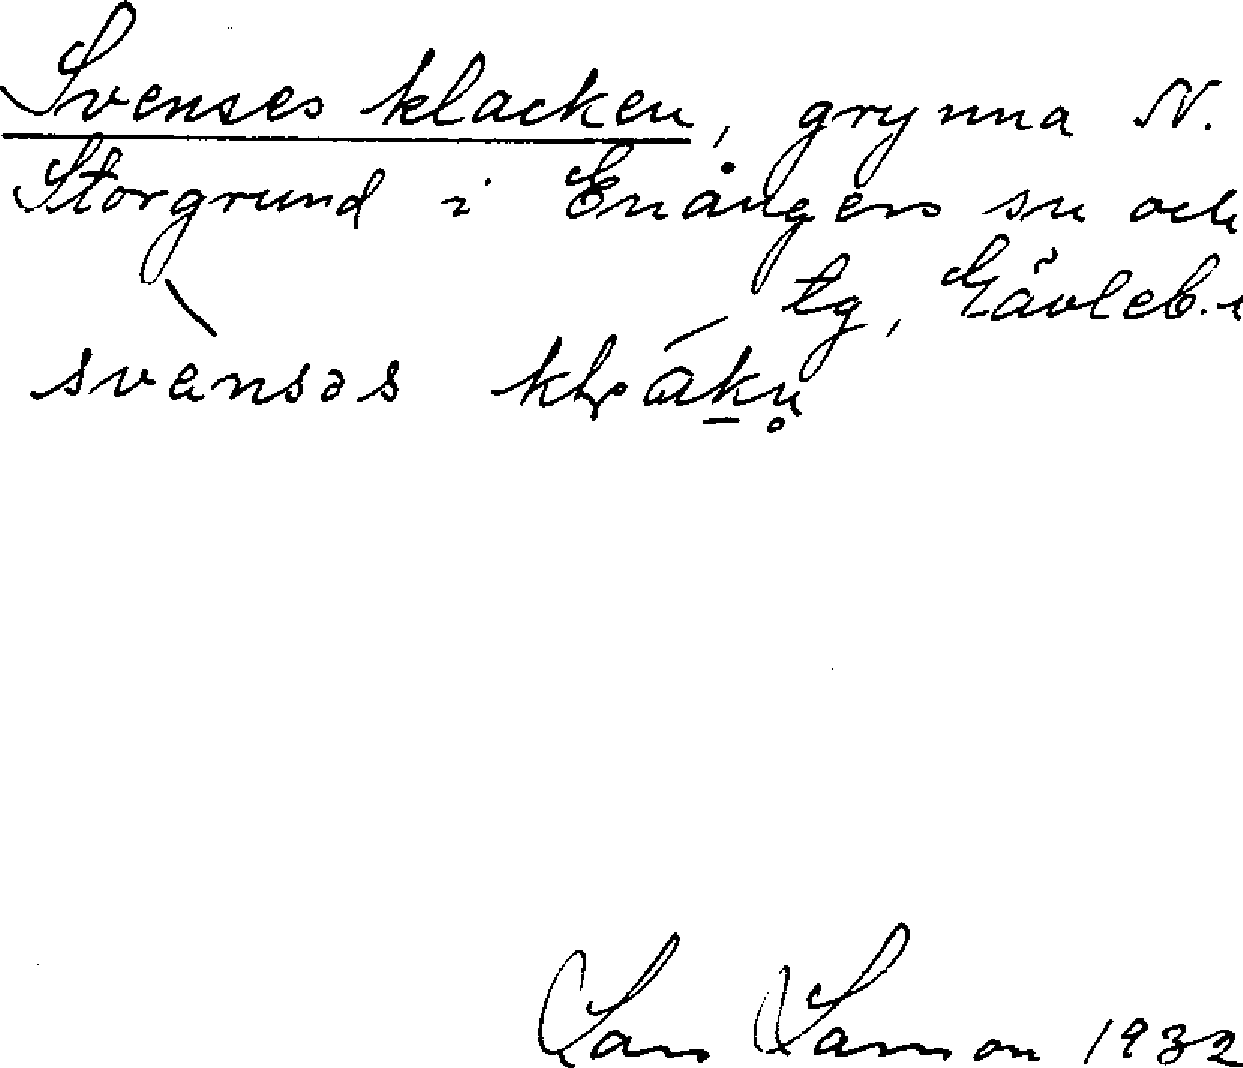 Svenses klacken, grynna N.
Storgrund i Enångers sn och
tg, Gävleb.
svansəs
Lars Larsson 1932